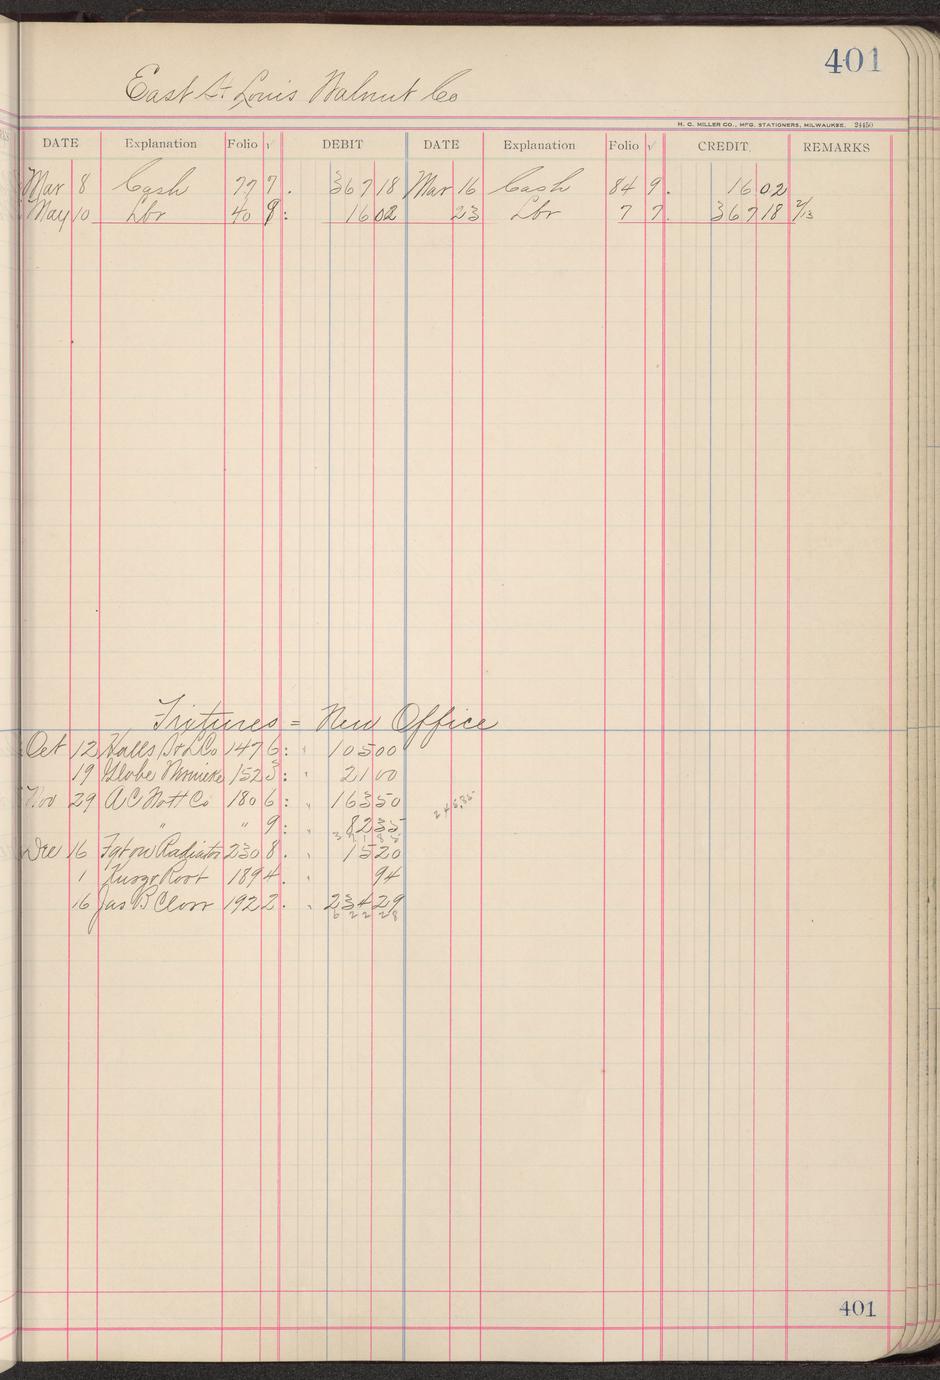 401
East St Louis Walnut Co
H. C. MILLER CO., MFG. STATIONERS, MILWAUKEE. 24450
DATE Explanation Folio √ DEBIT DATE Explanation Folio √ CREDIT REMARKS
Mar 8 Cash 77 7. 367 18 Mar 16 Cash 84 9. 16 02
May 10 Lbr 40 9: 16 02 23 Lbr 7 7. 367 18 2/13
Fixtures = New Office
Oct 12 Halls S & L Co 147 6: 105 00
19 Globe Wernicke 152 3: 21 00
Nov 29 A C Nott Co 180 6: 163 50
" " 9: 82 35
245.85
321 85
Dec 16 Radiator 230 8. 15 20
1 Root 189 4. 94
16 Jas B Clow 192 2. 234 29
622 28
401